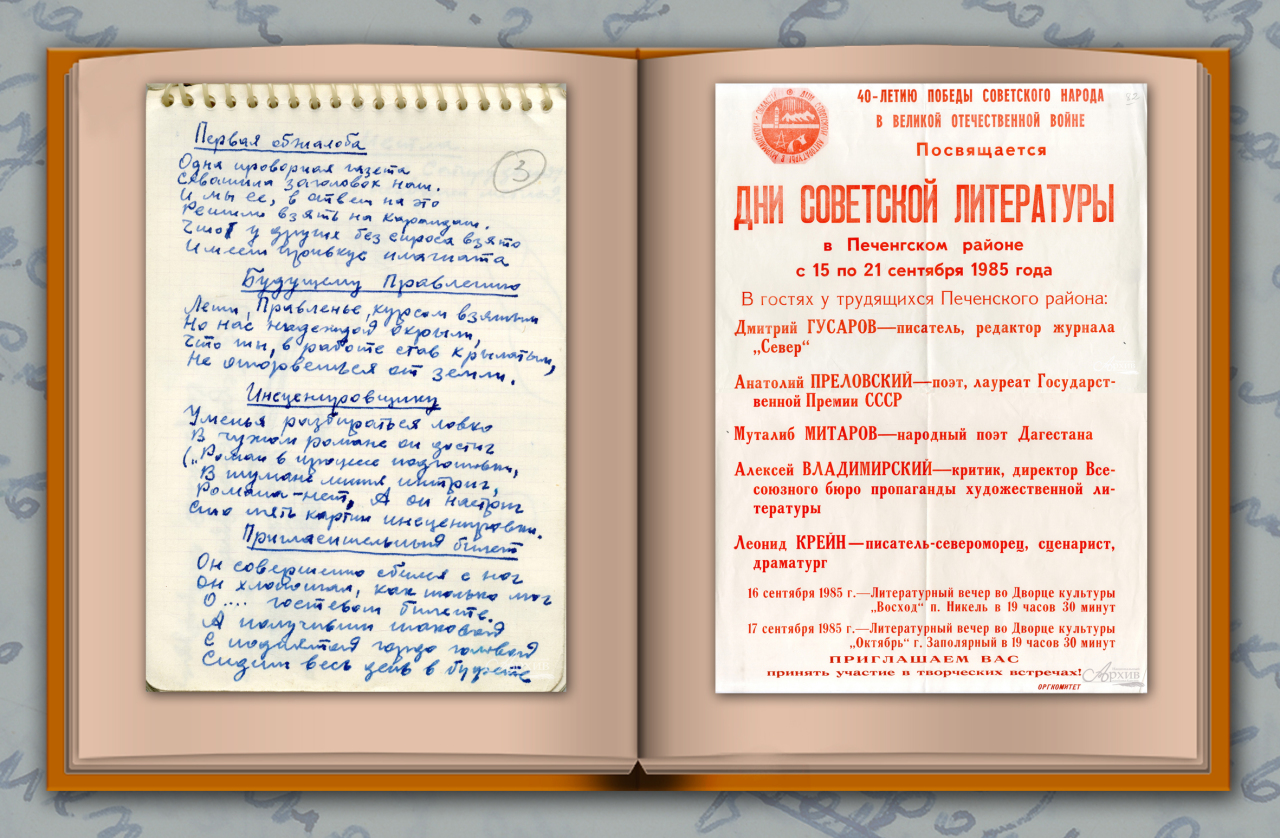 Первая обжалоба
3
Одна проворная газета
Сквашила заголовок наш.
И мы ее, в ответ на это
Решили взять на карандаш.
Что у других без спроса взято
Имеет привкус плагиата
Будущему Правлению
Лети, Правленье, курсом взятым
Но нас надеждой окрыли,
Что ты, в работе став крылатым,
Не оторвешься от земли.
Инсценировщику
Уменья разбираться ловко
В чужом романе он достиг
(„Роман в процессе подготовки,
В тумане линия интриг,
Романа - нет, А он настриг
пять картин инсценировки.
Пригласительный билет
Он совершенно сбился с ног
Он хлопотал, как только мог
О .... гостевом билете.
А получивши таковой
С поднятой гордо головой
Сидит весь день в буфете
40-ЛЕТИЮ ПОБЕДЫ СОВЕТСКОГО НАРОДА
В ВЕЛИКОЙ ОТЕЧЕСТВЕННОЙ ВОЙНЕ
Посвящается
ДНИ СОВЕТСКОЙ ЛИТЕРАТУРЫ
в Печенгском районе
с 15 по 21 сентября 1985 года
В гостях у трудящихся Печенского района:
Дмитрий ГУСАРОВ—писатель, редактор журнала
„Север“
Анатолий ПРЕЛОВСКИЙ—поэт, лауреат Государст-
венной Премии СССР
Муталиб МИТАРОВ—народный поэт Дагестана
Алексей ВЛАДИМИРСКИЙ—критик, директор Все-
союзного бюро пропаганды художественной ли-
тературы
Леонид КРЕЙН—писатель-североморец, сценарист,
драматург
16 сентября 1985 г.—Литературный вечер во Дворце культуры
„Восход“ п. Никель в 19 часов 30 минут
17 сентября 1985 г.—Литературный вечер во Дворце культуры
„Октябрь“ г. Заполярный в 19 часов 30 минут
ПРИГЛАШАЕМ ВАС
принять участие в творческих встречах!
ОРГКОМИТЕТ
Архив